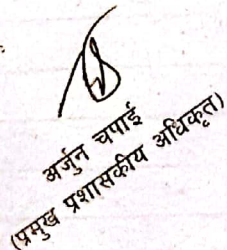 अर्जुन चपाई
(प्रमुख प्रशासकीय अधिकृत)